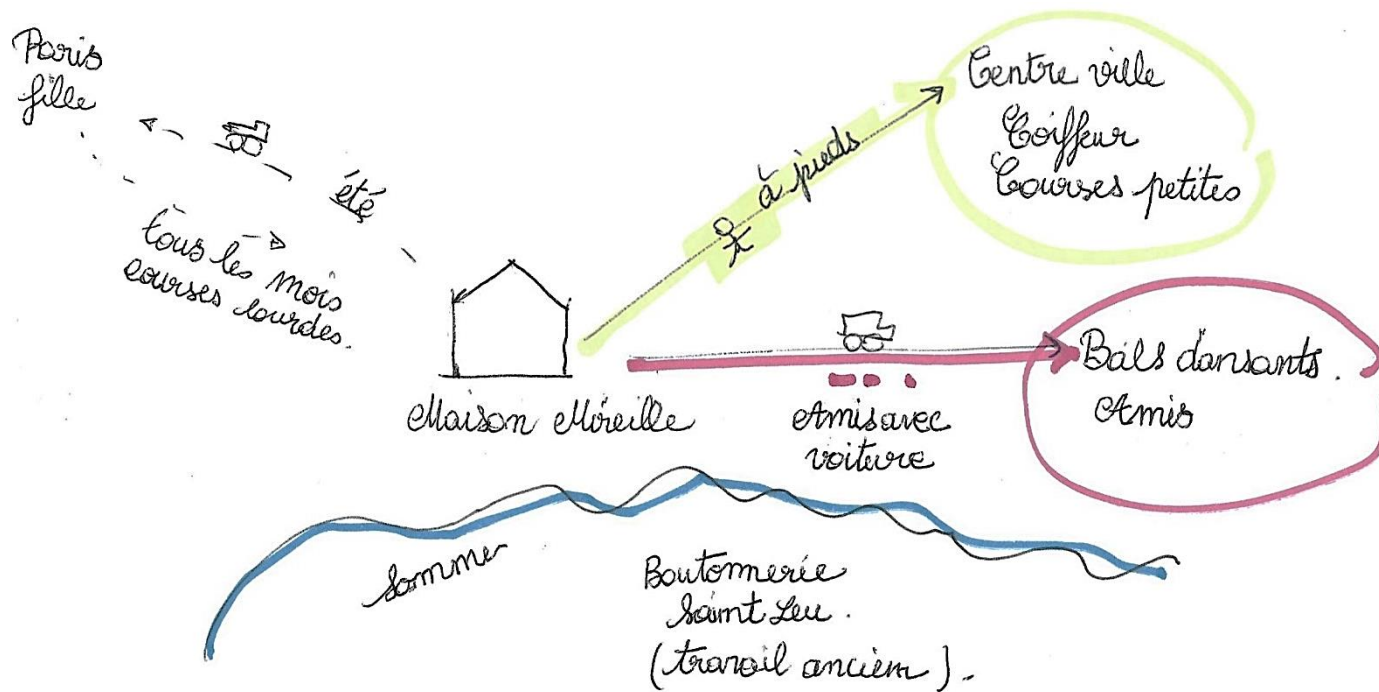 Paris
fille
été
tous les mois
courses lourdes.
à pieds
Centre ville
Coiffeur
Courses petites
Maison Mireille
Amis avec
voiture
Bals dansants.
Amis
Somme
Boutonnerie
Saint Leu.
(travail ancien).